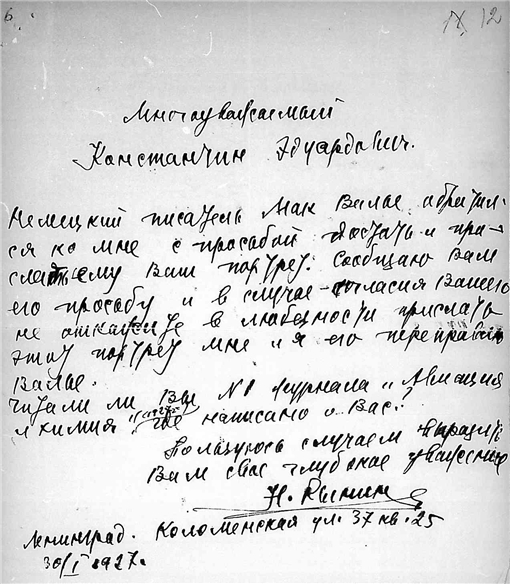 6
IX 12
Многоуважаемый
Константин Эдуардович.
Немецкий писатель Мак Валье обратил-
ся ко мне с просьбой достать и при-
слать ему Ваш портрет. Сообщаю Вам
его просьбу и в случае согласия Вашего
не откажите в любезности прислать
этот портрет мне и я его переправлю
Валье.
Читали ли Вы №1 журнала "Авиация
и химия" (1927г.) где написано о Вас?
Пользуюсь случаем выразить
Вам свое глубокое уважение
Н. Рынин
Ленинград. Коломенская ул. 37 кв. 25
30/I 1927.